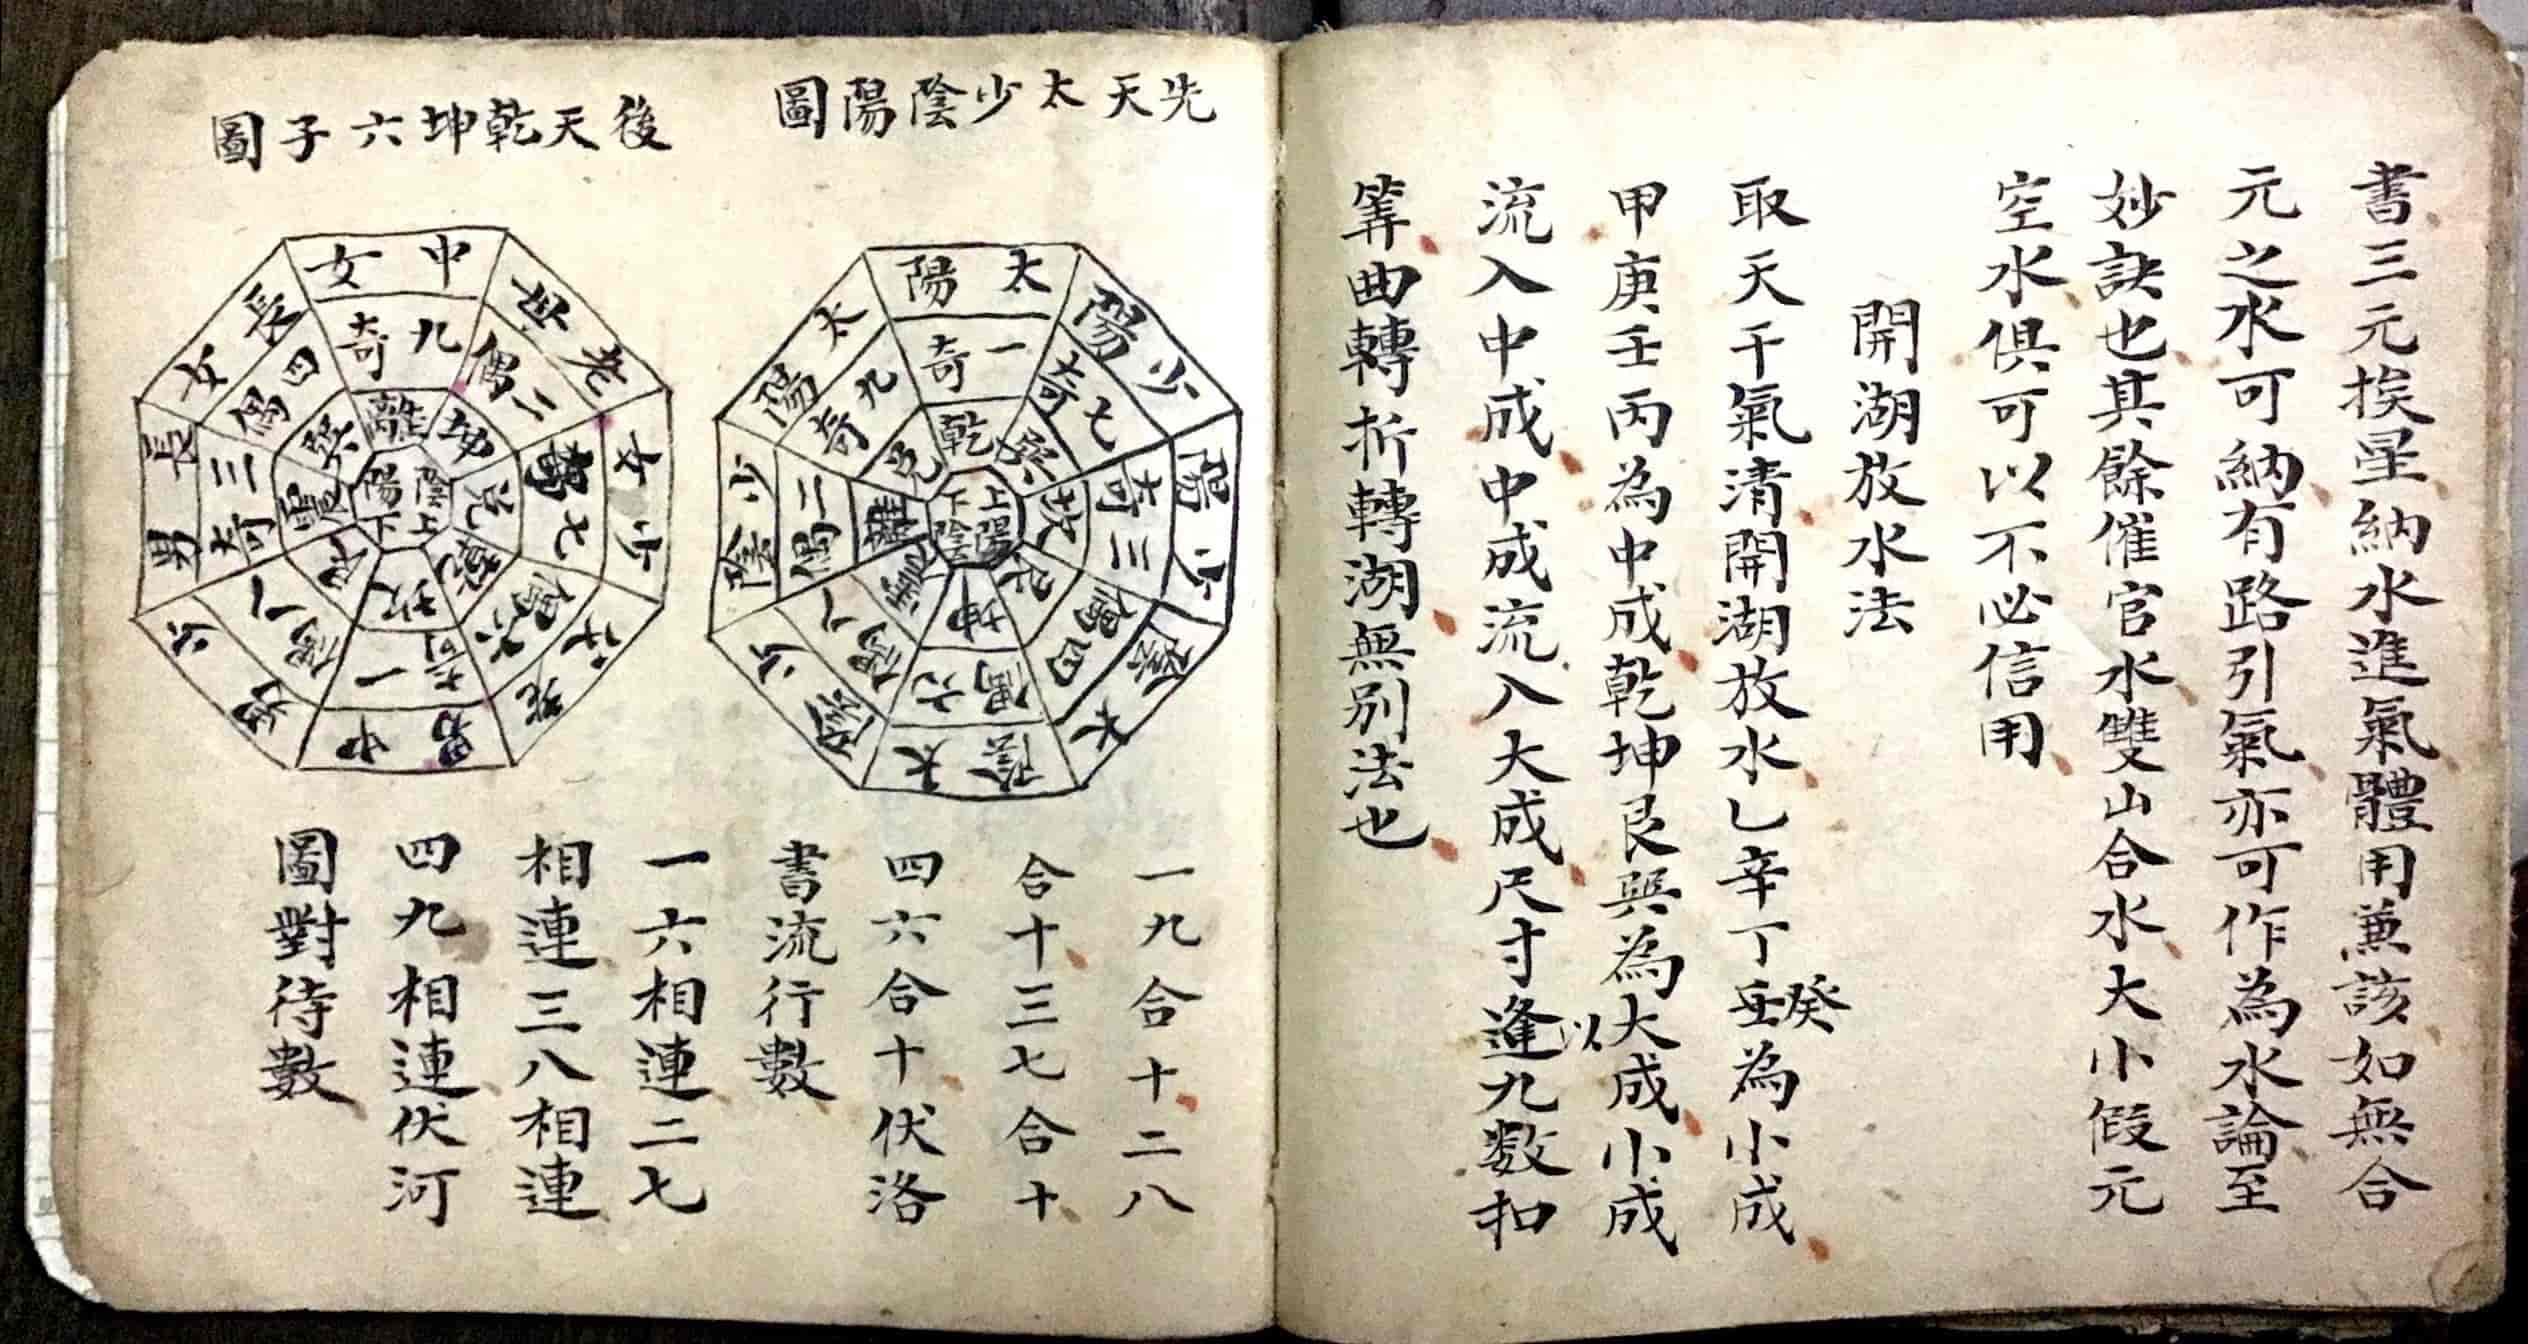 書三元挨星納水進氣體用兼該如無合
元之水可納有路引氣亦可作為水論至
妙訣也其餘催官水雙山合水大小假元
空水俱可以不必信用
開湖放水法
取天干氣清開湖放水乙辛丁壬癸為小成
甲庚壬丙為中成乾坤艮巽為大成小成
以
流入中成中成流入大成尺寸逢九数扣
筭曲轉折轉湖無別法也
先天太少陰陽圖
太陽
一奇
乾
少陽
七奇
巽
少陽
三奇
坎
太陰
四偶
艮
太陰
六偶
坤
少陰
八偶
震
少陰
二偶
離
太陽
九奇
兌
上陽
下陰
一九合十二八
合十三七合十
四六合十伏洛
書流行數
後天乾坤六子圖
中女
九奇
離
老母
二偶
坤
少女
七
兌
六偶
乾
中男
一奇
坎
少男
八偶
艮
長男
三奇
震
長女
四偶
巽
上陰
下陽
一六相連二七
相連三八相連
四九相連伏河
圖對待數